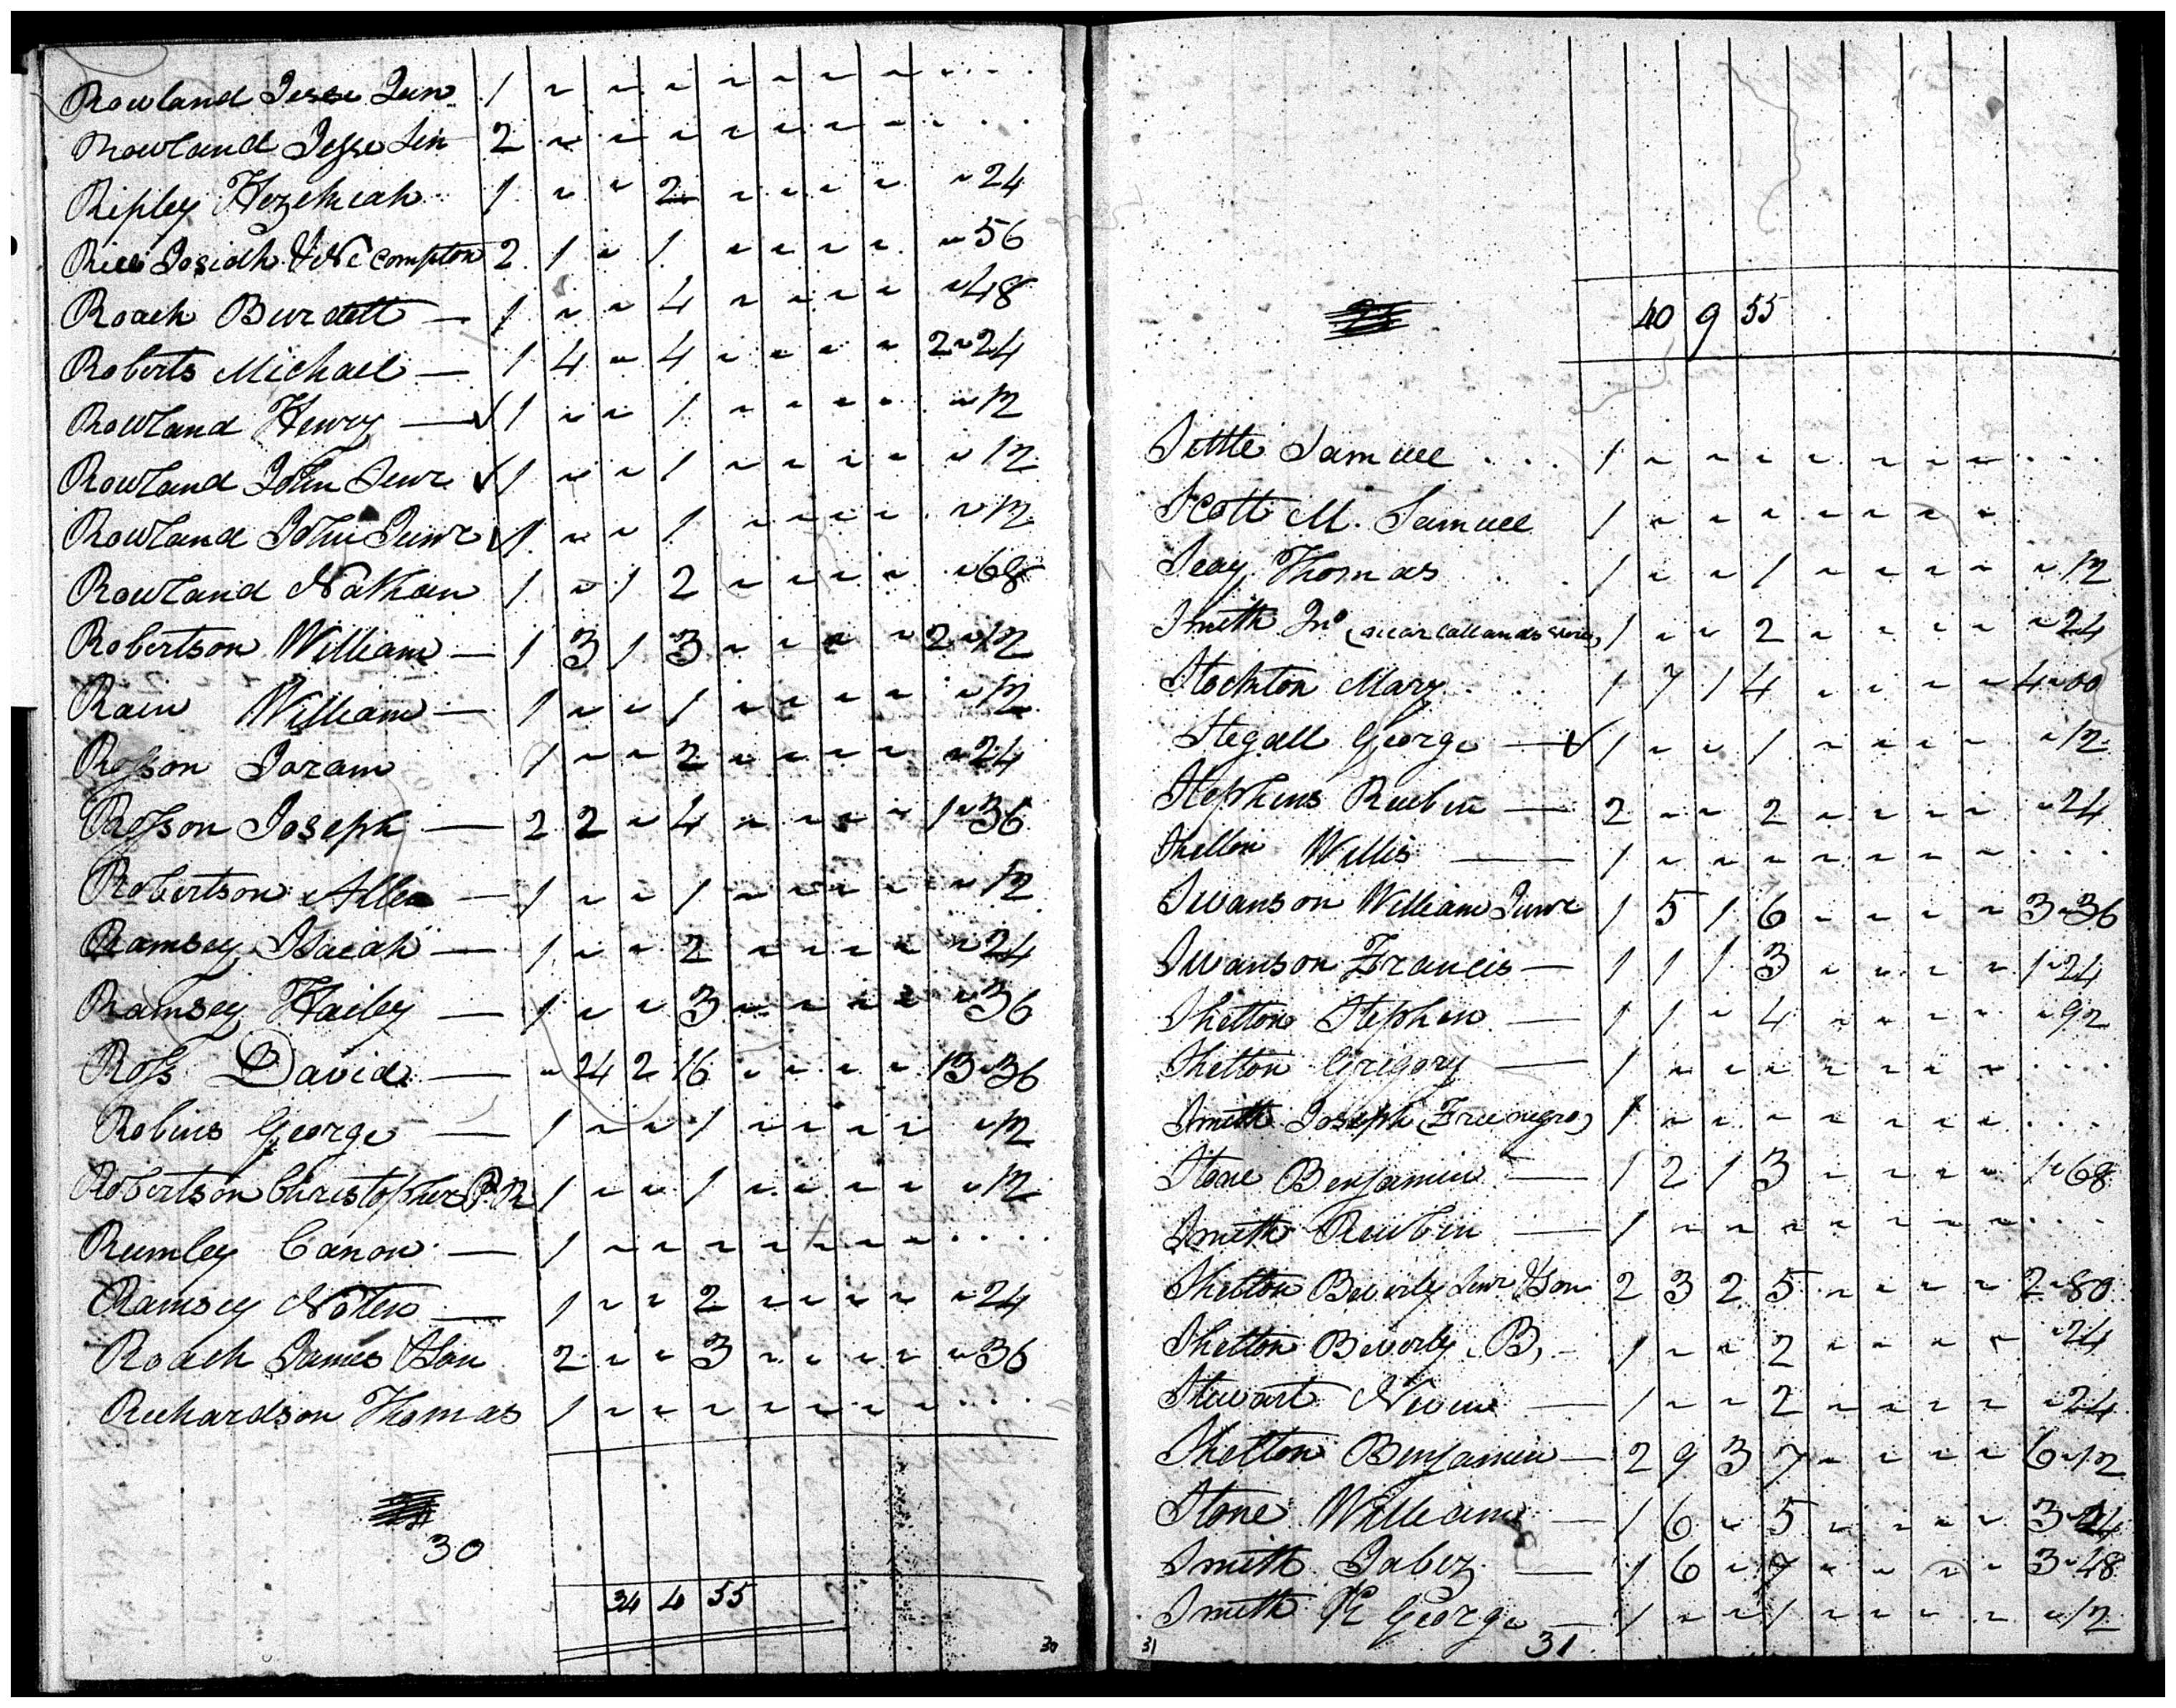 Rowland Jesse Jun 1 ~ ~ ~ ~ ~ ~ ~ ~ . . .
Rowland Jesse Sen 2 ~ ~ ~ ~ ~ ~ ~ ~ . . .
Ripley Hezekiah 1 ~ ~ 2 ~ ~ ~ ~ ~ 24
Rice Josiah & Ne Compton 2 1 ~ 1 ~ ~ ~ ~ ~ 56
Roach Burdett — 1 ~ ~ 4 ~ ~ ~ ~ ~ 48
Roberts Michael — 1 4 ~ 4 ~ ~ ~ ~ 2 ~ 24
Rowland Henry — ✓ 1 ~ ~ 1 ~ ~ ~ ~ ~ 12
Rowland John Senr ✓ 1 ~ ~ 1 ~ ~ ~ ~ ~ 12
Rowland John Junr ✓ 1 ~ ~ 1 ~ ~ ~ ~ ~ 12
Rowland Nathan 1 ~ 1 2 ~ ~ ~ ~ ~ 68
Robertson William — 1 3 1 3 ~ ~ ~ ~ 2 ~ 12
Rain William — 1 ~ ~ 1 ~ ~ ~ ~ ~ 12
Rosson Joram 1 ~ ~ 2 ~ ~ ~ ~ ~ 24
Rosson Joseph — 2 2 ~ 4 ~ ~ ~ ~ 1 ~ 36
Robertson Allen — 1 ~ ~ 1 ~ ~ ~ ~ ~ 12
Ramsey Isaiah — 1 ~ ~ 2 ~ ~ ~ ~ ~ 24
Ramsey Hailey — 1 ~ ~ 3 ~ ~ ~ ~ ~ 36
Ross David — ~ 24 2 16 ~ ~ ~ ~ 13 ~ 36
Robins George — 1 ~ ~ 1 ~ ~ ~ ~ ~ 12
Robertson Christopher P.R 1 ~ ~ 1 ~ ~ ~ ~ ~ 12
Rumley Canon — 1 ~ ~ ~ ~ ~ ~ ~ . . . .
Ramsey Noten — 1 ~ ~ 2 ~ ~ ~ ~ ~ 24
Roach James & Son 2 ~ ~ 3 ~ ~ ~ ~ ~ 36
Richardson Thomas 1 ~ ~ ~ ~ ~ ~ ~ . . .
30
34 4 55
30
40 9 55
Settle Samuel . . . 1 ~ ~ ~ ~ ~ ~ ~ . . .
Scott M. Samuel 1 ~ ~ ~ ~ ~ ~ ~
Seay Thomas . . 1 ~ ~ 1 ~ ~ ~ ~ ~ 12
Smith Jno 1 ~ ~ 2 ~ ~ ~ ~ ~ 24
Stockton Mary . . 1 7 1 4 ~ ~ ~ ~ 4 ~ 00
Stegall George — ✓ 1 ~ ~ 1 ~ ~ ~ ~ ~ 12
Stephens Reubin — 2 ~ ~ 2 ~ ~ ~ ~ ~ 24
Shelton Willis — 1 ~ ~ ~ ~ ~ ~ ~ . . .
Swanson William Junr 1 5 1 6 ~ ~ ~ ~ 3 ~ 36
Swanson Francis — 1 1 1 3 ~ ~ ~ ~ 1 ~ 24
Shelton Stephen — 1 1 ~ 4 ~ ~ ~ ~ ~ 92
Shelton Gregory — 1 ~ ~ ~ ~ ~ ~ ~ . . . .
Smith Joseph (Free negro) 1 ~ ~ ~ ~ ~ ~ ~ . . . .
Stone Benjamin — 1 2 1 3 ~ ~ ~ ~ 1 ~ 68
Smith Reubin — 1 ~ ~ ~ ~ ~ ~ ~ . . .
Shelton Beverly Senr & Son 2 3 2 5 ~ ~ ~ ~ 2 ~ 80
Shelton Beverly B, – 1 ~ ~ 2 ~ ~ ~ ~ ~ 24
Stewart — 1 ~ ~ 2 ~ ~ ~ ~ ~ 24
Shelton Benjamin — 2 9 3 7 ~ ~ ~ ~ 6 ~ 12
Stone William — 1 6 ~ 5 ~ ~ ~ ~ 3 ~ 24
Smith Jabez — 1 6 ~ 7 ~ ~ ~ ~ 3 ~ 48
Smith K George — 1 ~ ~ 1 ~ ~ ~ ~ ~ 12
31
31